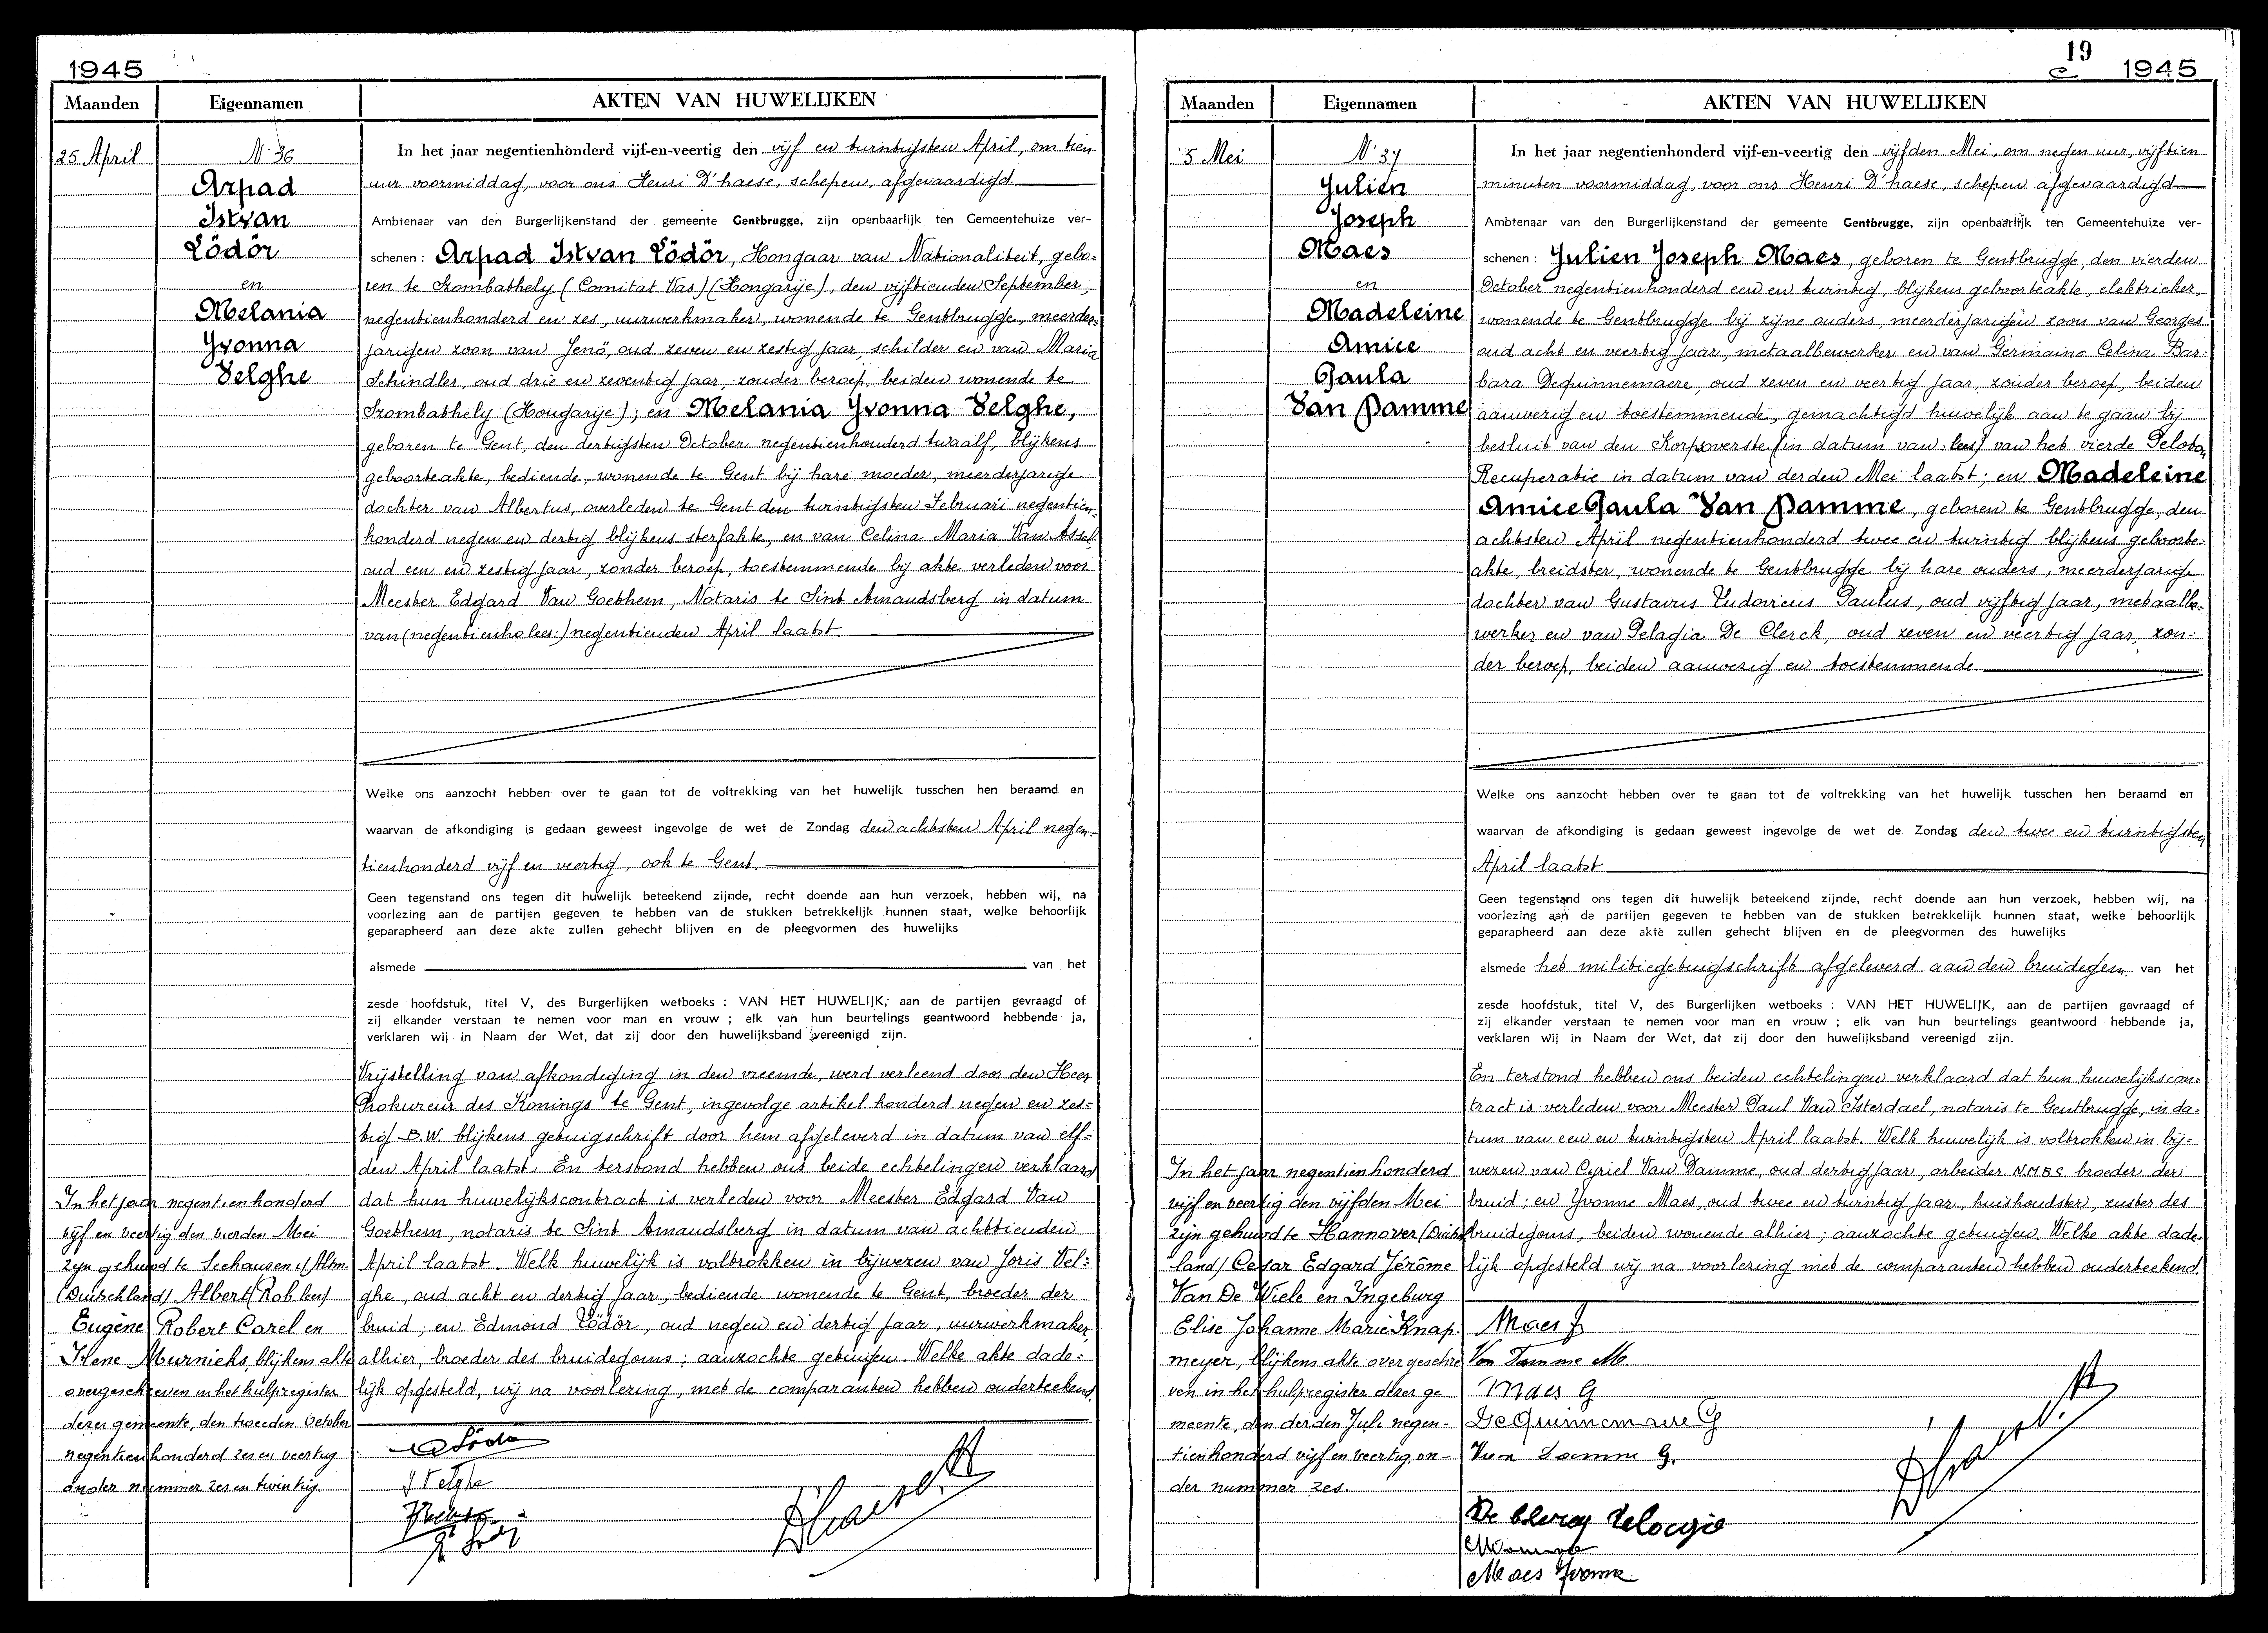 1945
Maanden
Eigennamen
AKTEN VAN HUWELIJKEN
25 April
N. 36
Arpad
Istvan
Lödör
en
Melania
Yvonna
Velghe
In het jaar negentienhonderd vijf-en-veertig den vijf en twintigsten April, om tien
uur voormiddag, voor ons Henri D'haese, schepen, afgevaardigd
Ambtenaar van den Burgerlijkenstand der gemeente Gentbrugge, zijn openbaarlijk ten Gemeentehuize ver-
schenen : Arpad Istvan Lödör, Hongaar van Nationaliteit, gebo-
ren te Szombathely (Comitat Vas) (Hongarije), den vijftienden September,
negentienhonderd en zes, uurwerkmaker, wonende te Gentbrugge, meerder-
jarigen zoon van Jenö, oud zeven en zestig jaar, schilder en van Maria
Schindler, oud drie en zeventig jaar, zonder beroep, beiden wonende te
Szombathely (Hongarije); en Melania Yvonna Velghe,
geboren te Gent, den dertigsten October negentienhonderd twaalf, blijkens
geboorteakte, bediende, wonende te Gent bij hare moeder, meerderjarige
dochter van Albertus, overleden te Gent den twintigsten Februari negentien-
honderd negen en dertig blijkens sterfakte, en van Celina Maria Van Assel,
oud een en zestig jaar, zonder beroep, toestemmende bij akte verleden voor
Meester Edgard Van Goethem, Notaris te Sint Amandsberg in datum
van (negentienho lees:) negentienden April laatst.
Welke ons aanzocht hebben over te gaan tot de voltrekking van het huwelijk tusschen hen beraamd en
waarvan de afkondiging is gedaan geweest ingevolge de wet de Zondag den achtsten April negen-
tienhonderd vijf en veertig, ook te Gent.
Geen tegenstand ons tegen dit huwelijk beteekend zijnde, recht doende aan hun verzoek, hebben wij, na
voorlezing aan de partijen gegeven te hebben van de stukken betrekkelijk hunnen staat, welke behoorlijk
geparapheerd aan deze akte zullen gehecht blijven en de pleegvormen des huwelijks
alsmede van het
zesde hoofdstuk, titel V, des Burgerlijken wetboeks : VAN HET HUWELIJK, aan de partijen gevraagd of
zij elkander verstaan te nemen voor man en vrouw ; elk van hun beurtelings geantwoord hebbende ja,
verklaren wij in Naam der Wet, dat zij door den huwelijksband vereenigd zijn.
Vrijstelling van afkondiging in den vreemde, werd verleend door den Heer
Prokureur des Konings te Gent, ingevolge artikel honderd negen en zes-
tig B.W. blijkens getuigschrift door hem afgeleverd in datum van elf-
den April laatst. En terstond hebben ons beide echtelingen verklaard
dat hun huwelijkscontract is verleden voor Meester Edgard Van
Goethem, notaris te Sint Amandsberg in datum van achttienden
April laatst. Welk huwelijk is voltrokken in bijwezen van Joris Vel-
ghe, oud acht en dertig jaar, bediende wonende te Gent, broeder der
bruid; en Edmond Lödör, oud negen en dertig jaar, uurwerkmaker,
alhier, broeder des bruidegoms; aanzochte getuigen. Welke akte dade-
lijk opgesteld, wij na voorlezing, met de comparanten hebben onderteekend.
In het jaar negentienhonderd
vijf en veertig den vierden Mei
zijn gehuwd te Seehausen i/Altm.
(Duitschland) Albert (Rob lees)
Eugène Robert Carel en
Irene Murnieks, blijkens akte
overgeschreven in het hulpregister
dezer gemeente, den tweeden October
negentienhonderd zes en veertig
onder nummer zes en twintig.
J Velghe
19
1945
Maanden
Eigennamen
AKTEN VAN HUWELIJKEN
5 Mei
N. 37
Julien
Joseph
Maes
en
Madeleine
Amice
Paula
Van Damme
In het jaar negentienhonderd vijf-en-veertig den vijfden Mei, om negen uur, vijftien
minuten voormiddag, voor ons Henri D'haese, schepen afgevaardigd
Ambtenaar van den Burgerlijkenstand der gemeente Gentbrugge, zijn openbaarlijk ten Gemeentehuize ver-
schenen : Julien Joseph Maes, geboren te Gentbrugge, den vierden
October negentienhonderd een en twintig, blijkens geboorteakte, elektrieker,
wonende te Gentbrugge bij zijne ouders, meerderjarigen zoon van Georges
oud acht en veertig jaar, metaalbewerker en van Germaine Celina Bar-
bara Dequinnemaere, oud zeven en veertig jaar, zonder beroep, beiden
aanwezig en toestemmende, gemachtigd huwelijk aan te gaan bij
besluit van den Korpsoverste (in datum van lees) van het vierde Peloton
Recuperatie in datum van derden Mei laatst; en Madeleine
Amice Paula Van Damme, geboren te Gentbrugge, den
achtsten April negentienhonderd twee en twintig blijkens geboorte-
akte, breidster, wonende te Gentbrugge bij hare ouders, meerderjarige
dochter van Gustavus Ludovicus Paulus, oud vijftig jaar, metaalbe-
werker en van Pelagia De Clerck, oud zeven en veertig jaar, zon-
der beroep, beiden aanwezig en toestemmende
Welke ons aanzocht hebben over te gaan tot de voltrekking van het huwelijk tusschen hen beraamd en
waarvan de afkondiging is gedaan geweest ingevolge de wet de Zondag den twee en twintigsten
April laatst
Geen tegenstand ons tegen dit huwelijk beteekend zijnde, recht doende aan hun verzoek, hebben wij, na
voorlezing aan de partijen gegeven te hebben van de stukken betrekkelijk hunnen staat, welke behoorlijk
geparapheerd aan deze akte zullen gehecht blijven en de pleegvormen des huwelijks
alsmede het militiegetuigschrift afgeleverd aan den bruidegom van het
zesde hoofdstuk, titel V, des Burgerlijken wetboeks : VAN HET HUWELIJK, aan de partijen gevraagd of
zij elkander verstaan te nemen voor man en vrouw ; elk van hun beurtelings geantwoord hebbende ja,
verklaren wij in Naam der Wet, dat zij door den huwelijksband vereenigd zijn.
En terstond hebben ons beiden echtelingen verklaard dat hun huwelijkscon-
tract is verleden voor Meester Paul Van Isterdael, notaris te Gentbrugge, in da-
tum van een en twintigsten April laatst. Welk huwelijk is voltrokken in bij-
wezen van Cyriel Van Damme, oud dertig jaar, arbeider N.M.B.S. broeder der
bruid; en Yvonne Maes, oud twee en twintig jaar, huishoudster, zuster des
bruidegoms, beiden wonende alhier; aanzochte getuigen. Welke akte dade-
lijk opgesteld wij na voorlezing met de comparanten hebben onderteekend.
In het jaar negentienhonderd
vijf en veertig den vijfden Mei
zijn gehuwd te Hannover (Duitsch
land) Cesar Edgard Jérôme
Van De Wiele en Ingeburg
Elise Johanne Marie Knap-
meyer, blijkens akte overgeschre
ven in het hulpregister dezer ge
meente, den derden Juli negen-
tienhonderd vijf en veertig, on-
der nummer zes.
Maes J
Van Damme M.
Maes G
Dequinnemaere G
Van Damme G.
De Clercq Pelagie
Maes Yvonne